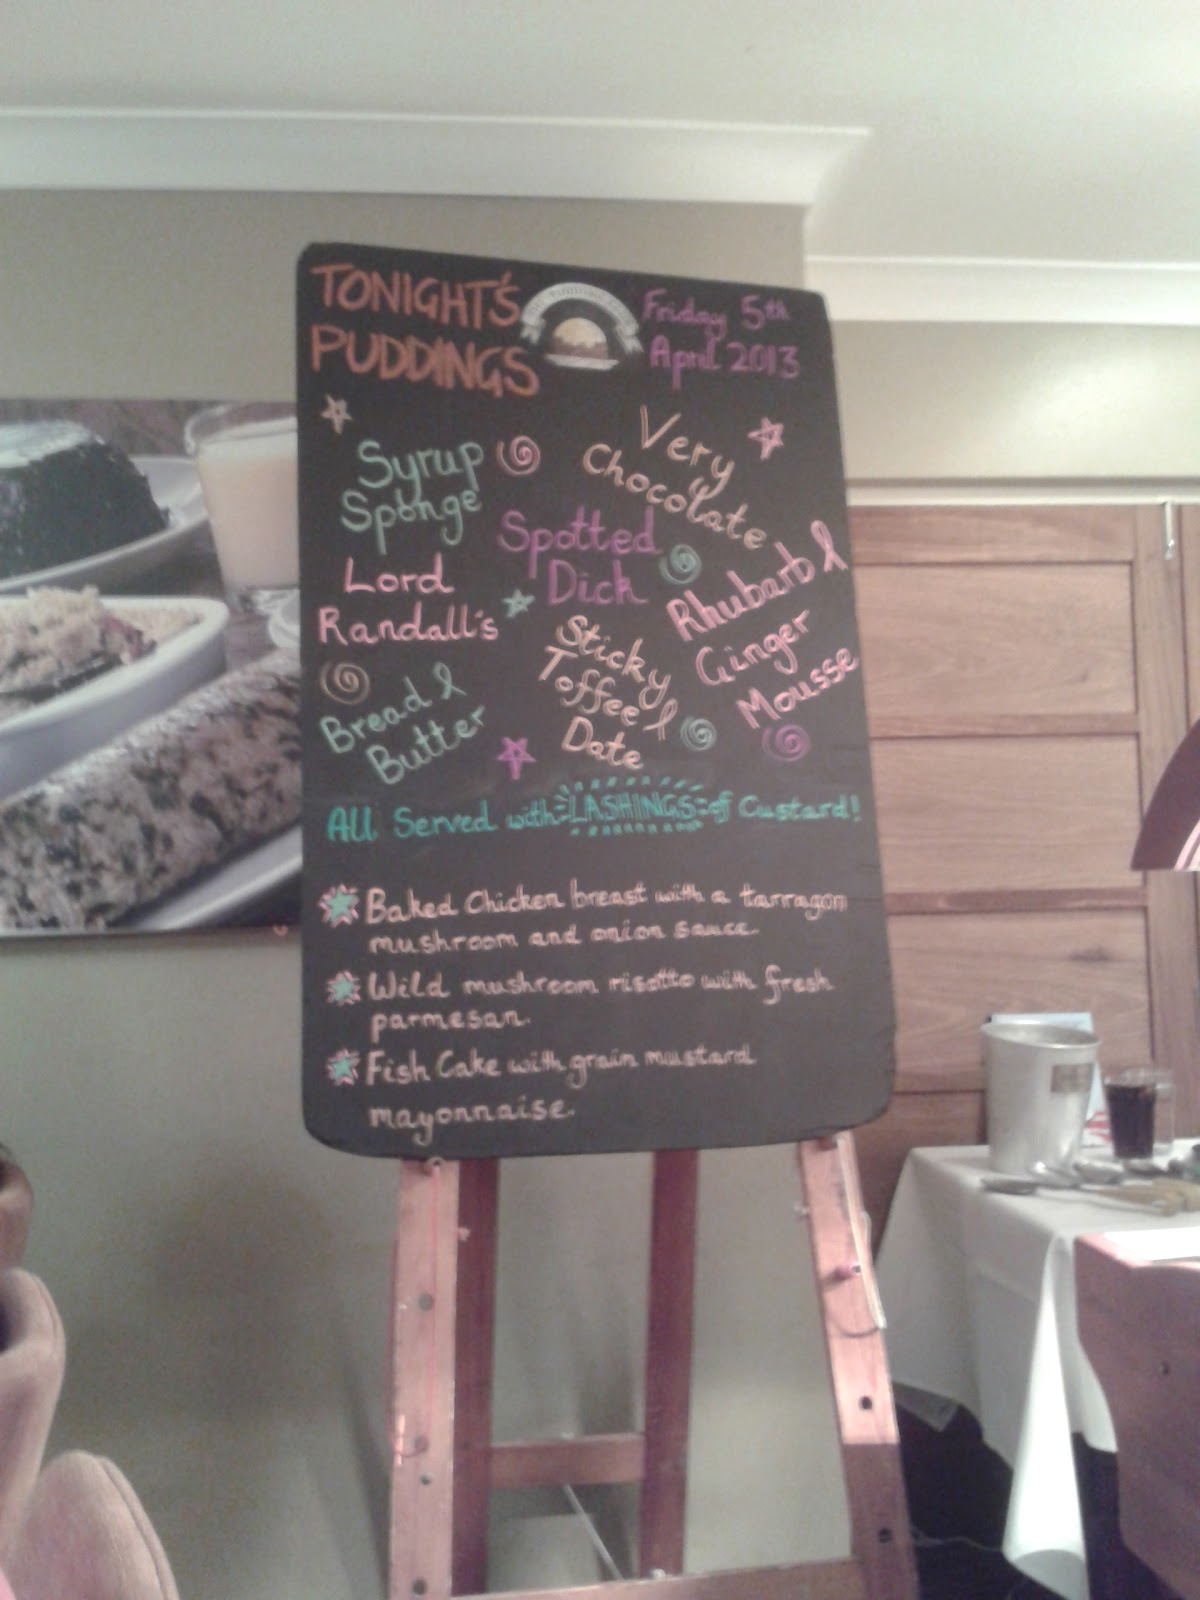 TONIGHT'S
PUDDINGS
Friday 5th
April 2013
Syrup
Sponge
Very
Chocolate
Spotted
Dick
Lord
Randall's
Rhubarb &
Ginger
Mousse
Sticky
Toffee &
Date
Bread &
Butter
All Served with LASHINGS of Custard!
Baked Chicken breast with a tarragon
mushroom and onion sauce.
Wild mushroom risotto with fresh
parmesan.
Fish Cake with grain mustard
mayonnaise.